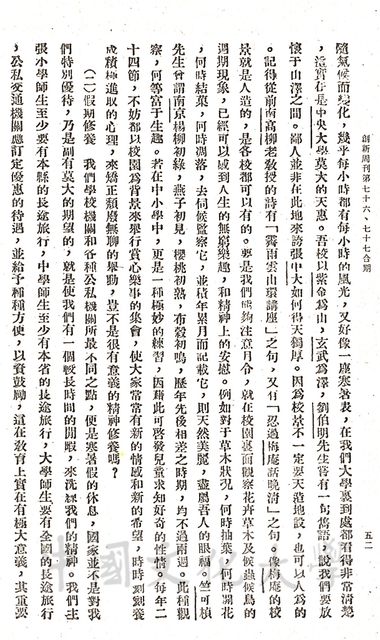 創新周刊第七十六、七十七合期
五二
隨氣候而變化，幾乎每小時都有每小時的風光，又好像一座寒暑表，在我們大學裏到處都看得非常清楚
，這實在是中央大學莫大的天惠。吾校以紫金爲山，玄武爲澤，劉伯明先生嘗有一句舊語，說我們要放
懷于山澤之間。鄙人並非在此地來誇張中大如何得天獨厚。因爲校景不一定要天造地設，也可以人爲的
。記得從前南高柳老教授的詩有「霽雨雲山環講座」之句，又有「忍過梅庵話晚清」之句。像梅庵的校
景就是人造的，是各校都可以有的。要是我們能夠注意月令，就在校園裏面觀察花卉草木及候蟲候鳥的
週期現象，已經可以感到人生的無窮樂趣，和精神上的安慰。例如對于草木狀況，何時抽葉，何時開花
，何時結果，何時凋落，去伺候監察它，並積年累月而記載它，則天然美麗，盡屬吾人的眼福。竺可楨
先生曾謂南京楊柳初綠，燕子初見，櫻桃初熟，布穀初鳴，歷年先後相差之時期，均不過兩週。此種觀
察，何等富于生趣。若在中小學中，更是一種極妙的練習，因藉此可啓發兒童求知好奇的性情。每年二
十四節，不妨都以校園爲背景來舉行賞心樂事的集會，使大家常常有新的情感和新的希望，時時刻刻養
成積極進取的心理，來矯正頹廢無聊的舉動，豈不是很有意義的精神修養嗎？
（二）假期修養　我們學校機關和各種公私機關所最不同之點，便是寒暑假的休息，國家並不是對我
們特別優待，乃是副有莫大的期望的，就是使我們有一個較長時間的閒暇，來洗練我們的精神。我們主
張小學師生至少要有本縣的長途旅行，中學師生至少有本省的長途旅行，大學師生要有全國的長途旅行
，公私交通機關應訂定優惠的待遇，並給予種種方便，以資鼓勵，這在教育上實在有極大意義，其重要